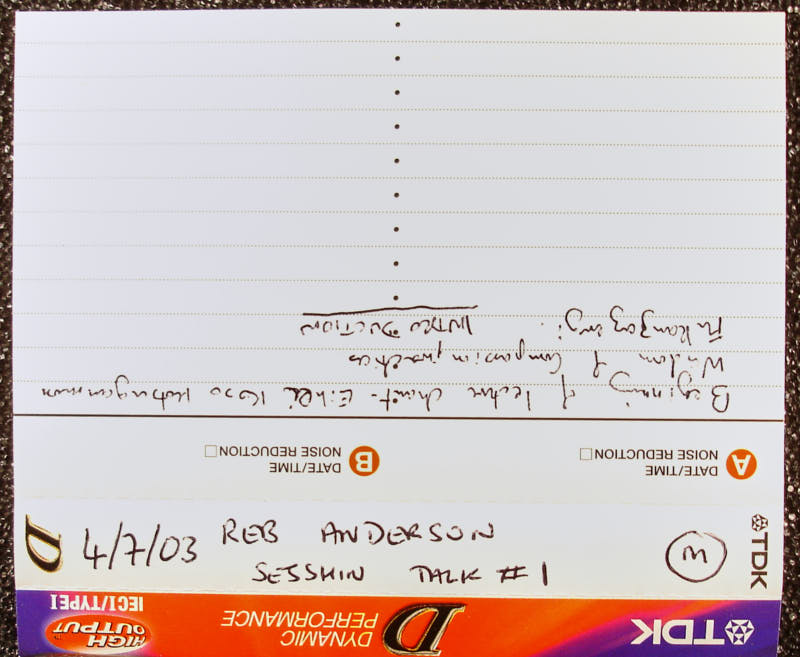 4/7/03 REB ANDERSON
SESSHIN TALK #1
M
TDK
D
TDK
D DYNAMIC PERFORMANCE
HIGH OUTPUT
IECI/TYPE I
A DATE/TIME
NOISE REDUCTION
B DATE/TIME
NOISE REDUCTION
Beginning of lecture chant - Eihei Koso
Wisdom of Compassion practices
Fukanzazengi. INTRODUCTION